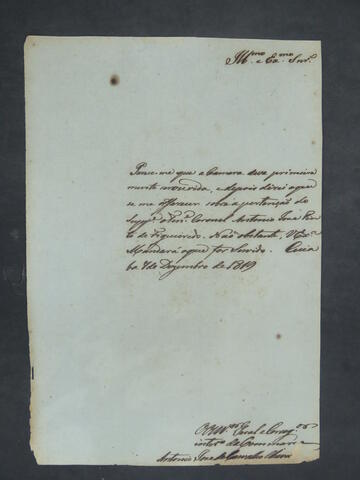 Illmo e Exmo Snr.
Parece-me que a Camara deve primeira
mente ser ouvida, e depois direi o que
se me offerecer sobre a pertenção do
Suppe o Tene Coronel Antonio José Pin
to de Figueiredo. Não obstante, V Exa
Mandará o que for Servido. Cuia
bá 7 de Dezembro de 1819
O Ouvor Geral e Correg.or
intero da Commarca
Antonio Jose de Carvalho